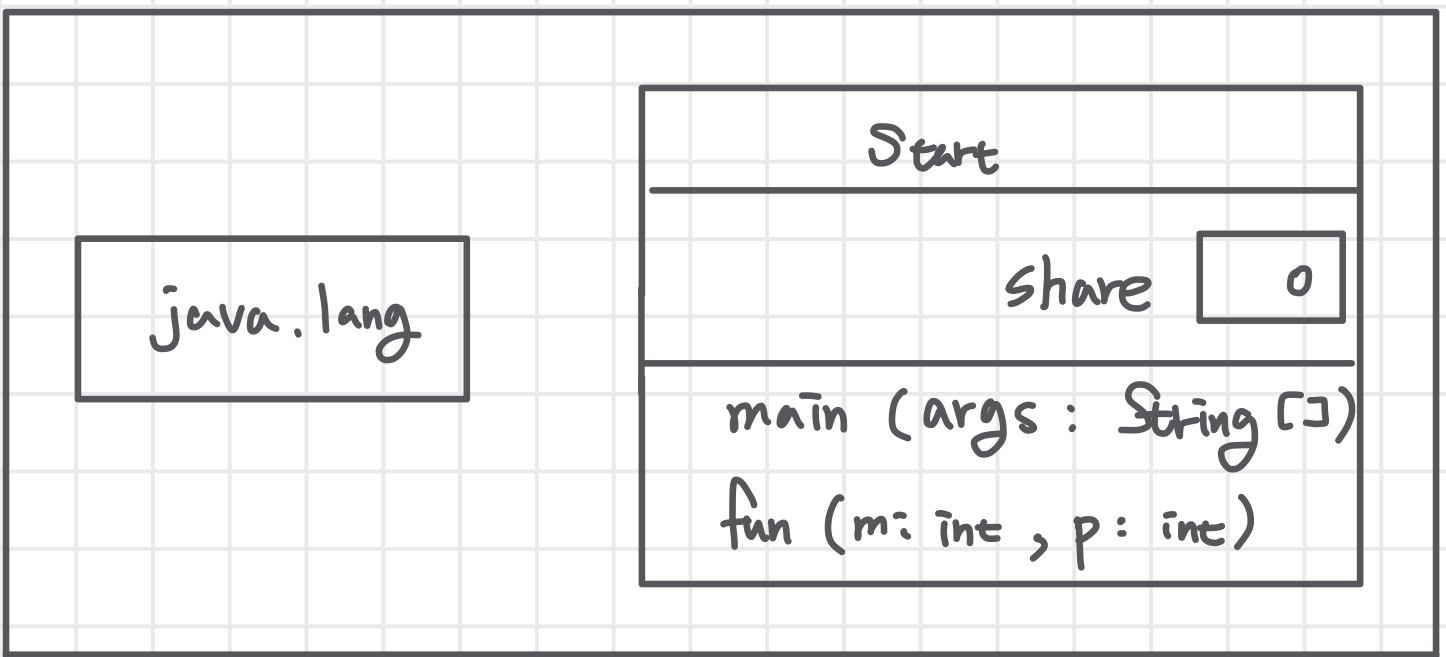 java.lang
Start
share 0
main (args : String [])
fun (m: int , p : int)